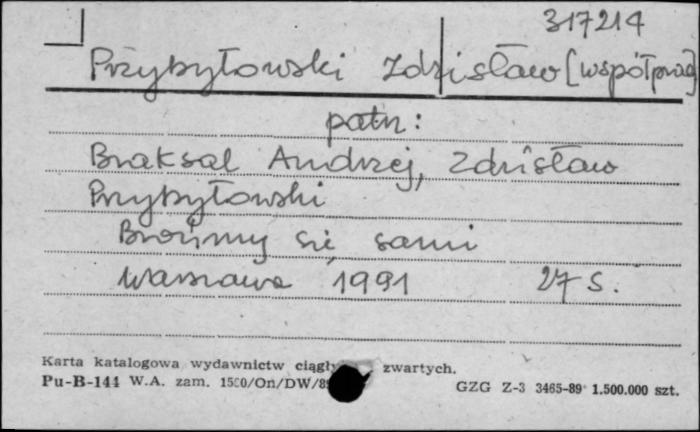 317214
Przybyłowski Zdzisław [współprac]
patrz:
Braksal Andrzej, Zdzisław
Przybyłowski
Brońmy się sami
Warszawa 1991 27 s.
Karta katalogowa wydawnictw ciągły zwartych.
Pu-B-144 W.A. zam. 1500/On/DW/89 GZG Z-3 3465-89 1.500.000 szt.